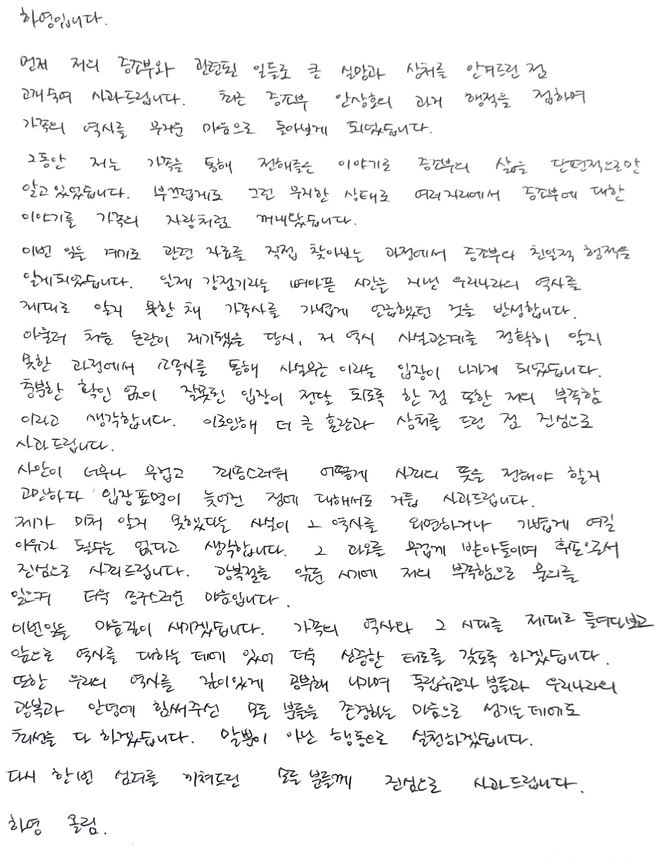 하영입니다.
먼저 저의 증조부와 관련된 일들로 큰 실망과 상처를 안겨드린 점
고개숙여 사과드립니다. 최근 증조부 안상호의 과거 행적을 접하며
가족의 역사를 무거운 마음으로 돌아보게 되었습니다.
그동안 저는 가족을 통해 전해들은 이야기로 증조부의 삶을 단편적으로만
알고 있었습니다. 부끄럽게도 그런 무지한 상태로 여러자리에서 증조부에 대한
이야기를 가족의 자랑처럼 꺼내왔습니다.
이번 일을 계기로 관련 자료를 직접 찾아보는 과정에서 증조부의 친일적 행적을
알게되었습니다. 일제 강점기라는 뼈아픈 시간을 지낸 우리나라의 역사를
제대로 알지 못한 채 가족사를 가볍게 언급했던 것을 반성합니다.
아울러 처음 논란이 제기됐을 당시, 저 역시 사실관계를 정확히 알지
못한 과정에서 소속사를 통해 사실무근이라는 입장이 나가게 되었습니다.
충분한 확인 없이 잘못된 입장이 전달 되도록 한 점 또한 저의 부족함
이라고 생각합니다. 이로인해 더 큰 혼란과 상처를 드린 점 진심으로
사과드립니다.
사안이 너무나 무겁고 죄송스러워 어떻게 사죄의 뜻을 전해야 할지
고민하다 입장표명이 늦어진 점에 대해서도 거듭 사과드립니다.
제가 미처 알지 못했다는 사실이 그 역사를 외면하거나 가볍게 여길
이유가 될수는 없다고 생각합니다. 그 과오를 무겁게 받아들이며 후손으로서
진심으로 사죄드립니다. 광복절을 앞둔 시기에 저의 부족함으로 물의를
일으켜 더욱 송구스러운 마음입니다.
이번일을 마음깊이 새기겠습니다. 가족의 역사와 그 시대를 제대로 들여다보고
앞으로 역사를 대하는 데에 있어 더욱 신중한 태도를 갖도록 하겠습니다.
또한 우리의 역사를 깊이있게 공부해 나가며 독립유공자 분들과 우리나라의
광복과 안녕에 힘써주신 모든 분들을 존경하는 마음으로 섬기는 데에도
최선을 다 하겠습니다. 말뿐이 아닌 행동으로 실천하겠습니다.
다시 한번 심려를 끼쳐드린 모든 분들께 진심으로 사과드립니다.
하영 올림.